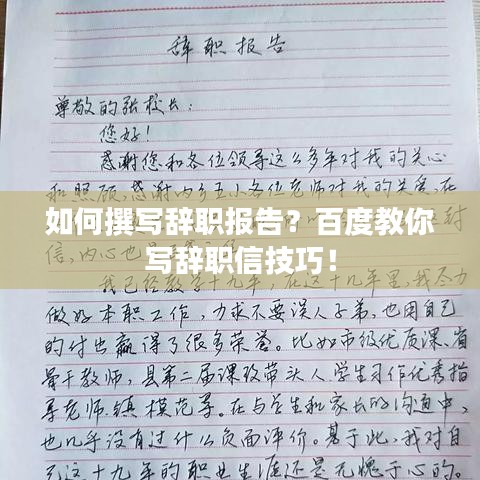 辞职报告
尊敬的张校长：
您好！
感谢您和各位领导这么多年对我的关心
和照顾，感谢内乡五小各位老师对我的关爱，在
如何撰写辞职报告？百度教你
写辞职信技巧！
信，内心也
我已经教学十九年，在这十几年里，我尽力
做好本职工作，力求不要误人子弟，也因自己
的付出赢得了很多荣誉。比如市级优质课、省
骨干教师，县第二届课改带头人，学生习作优秀指
导老师、镇模范等。在与学生和家长的沟通中，
也几乎没有过什么负面评价。基于此，我对自
己这十九年的职业生涯还是无愧于心的。